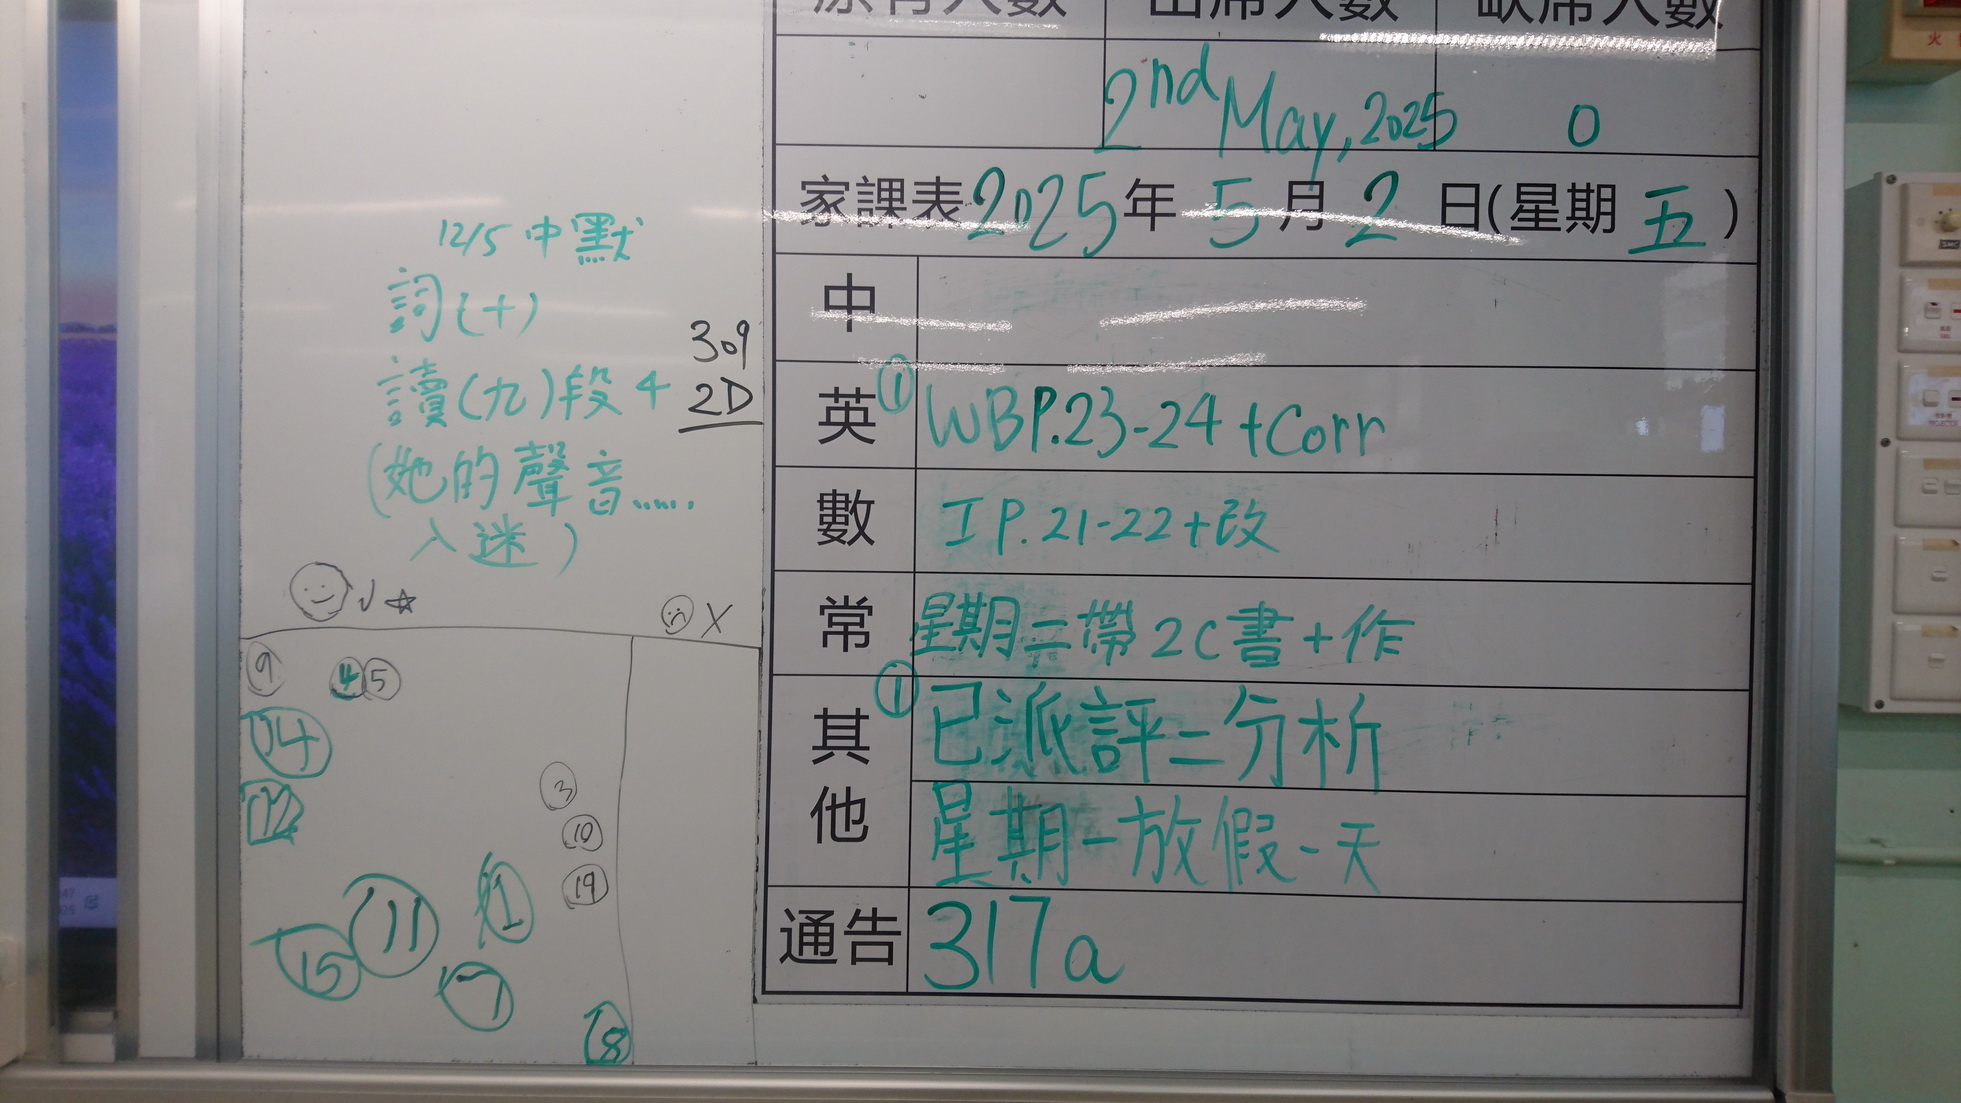 原有人數 出席人數 缺席人數
2nd May, 2025 0
家課表2025年5月2日(星期五)
中
英 ① WBP.23-24+Corr
數 I P.21-22+改
常 星期二帶2C書+作
其他 ① 已派評二分析
星期一放假一天
通告 317a
12/5 中默
詞(十)
讀(九)段4
(她的聲音......
入迷)
309
2D
✓ ☆
X
9 4 5
14
12
3
10
19
1
11
15
7
18
火